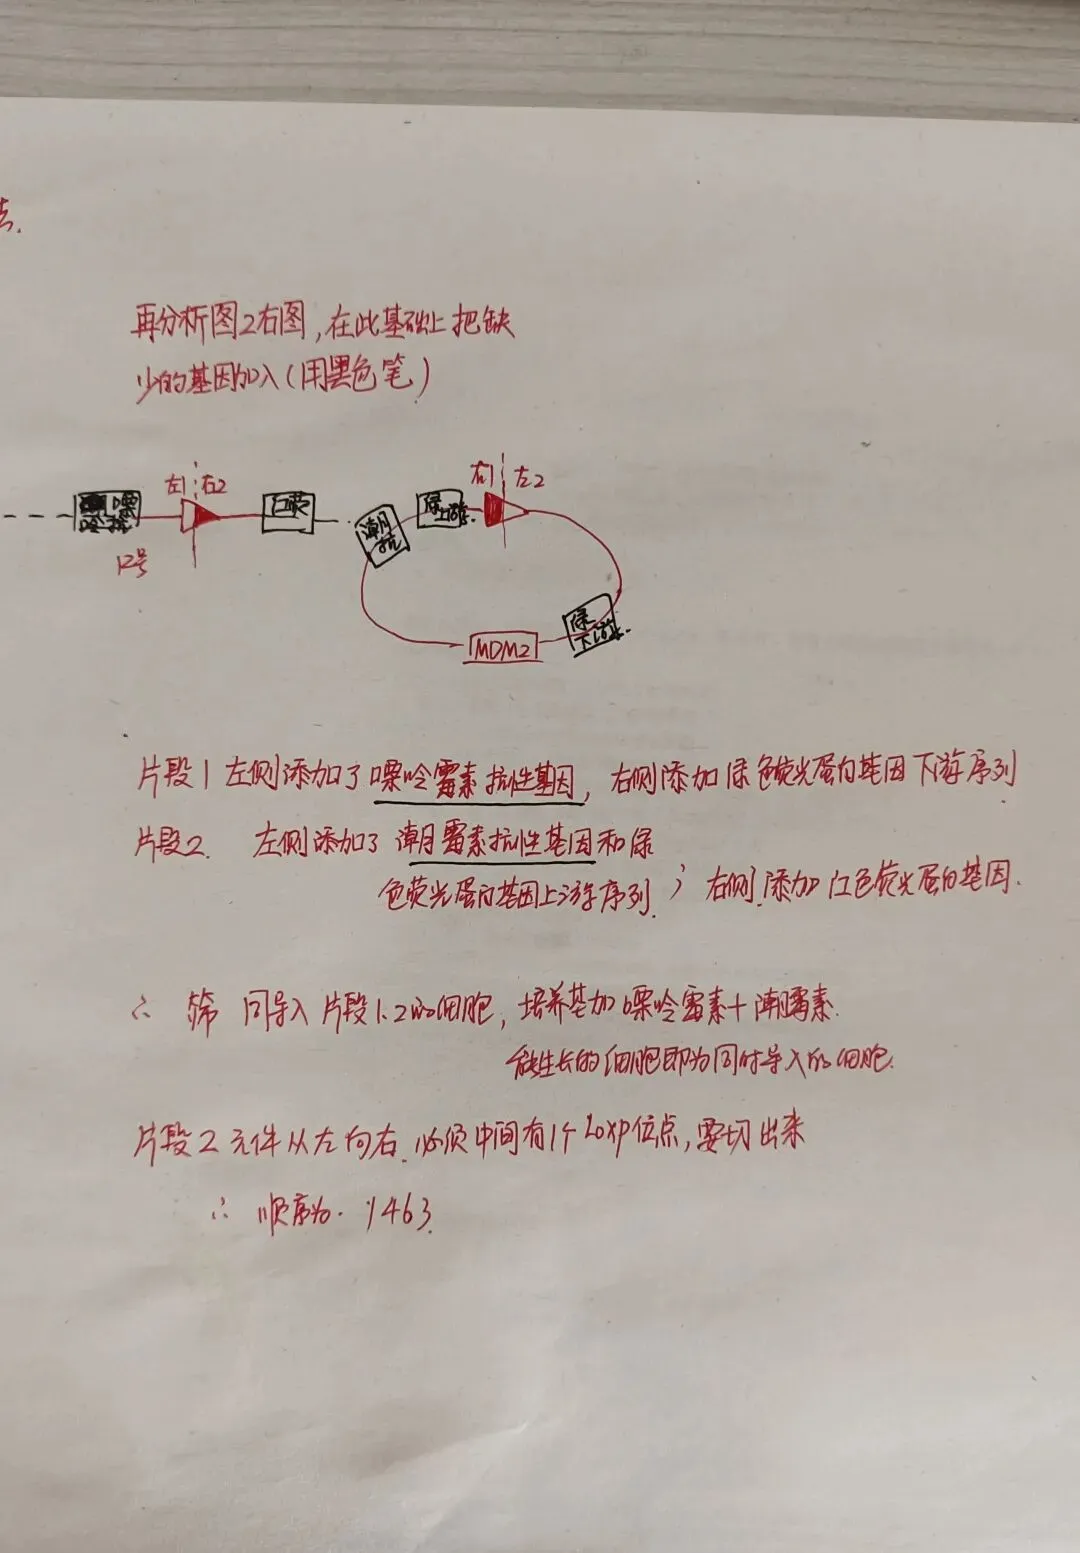 去.
再分析图2右图,在此基础上把缺
少的基因加入(用黑色笔)
左1 右2
右1 左2
嘌
红荧
潮
抗
绿
上游.
12号
绿
下游.
MDM2
片段1左侧添加了嘌呤霉素抗性基因,右侧添加绿色荧光蛋白基因下游序列
片段2. 左侧添加了潮霉素抗性基因和绿
色荧光蛋白基因上游序列; 右侧添加红色荧光蛋白基因.
∴ 筛 同导入片段1.2的细胞, 培养基加嘌呤霉素+潮霉素.
能生长的细胞即为同时导入的细胞.
片段2元件从左向右.必须中间有1个Loxp位点,要切出来
∴ 顺序为. 1463.